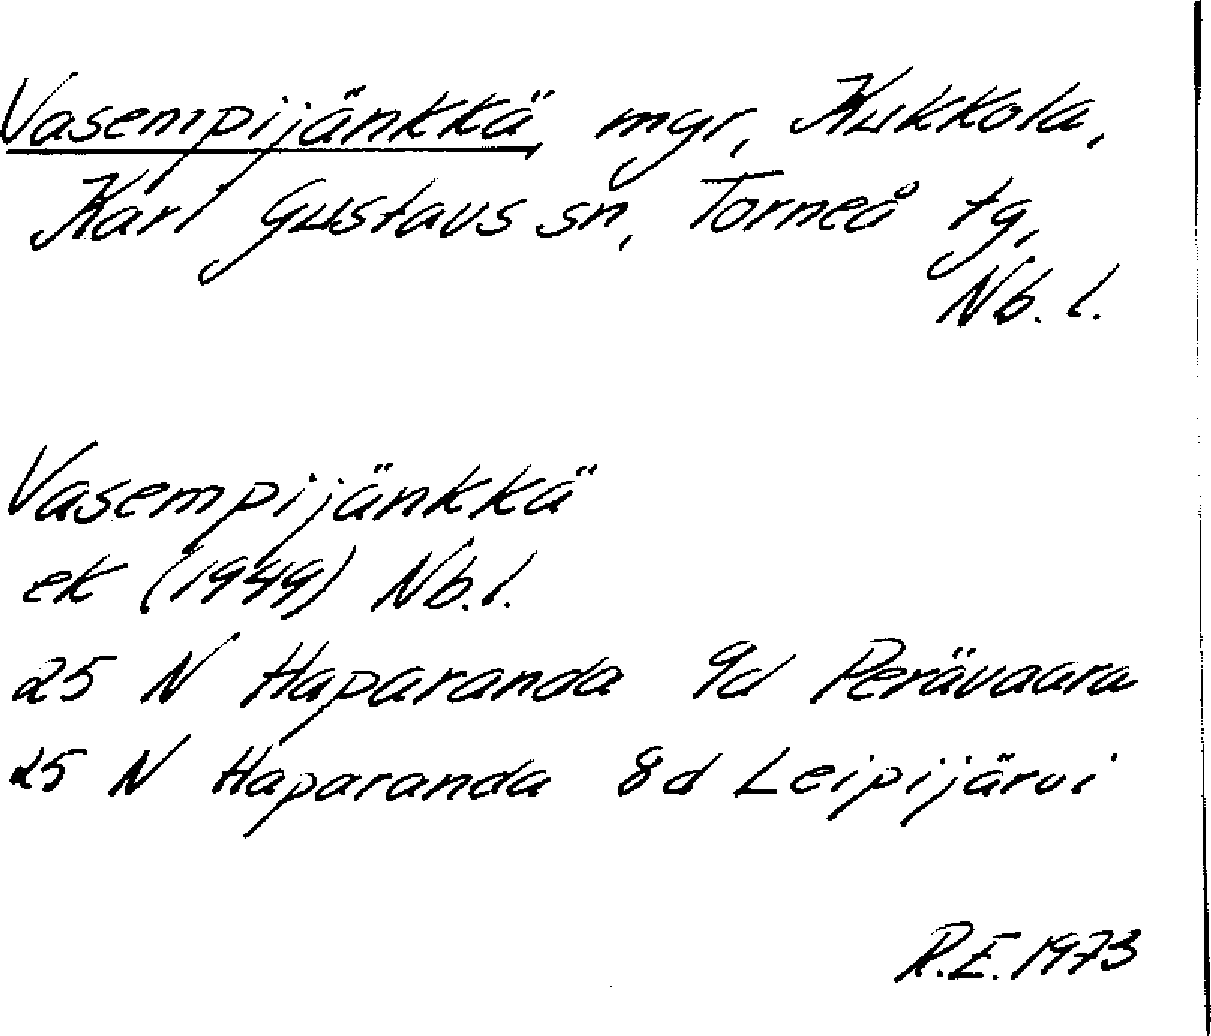 Vasempijänkkä, mgr, Kukkola,
Karl Gustavs sn, Torneå tg,
Nb. l.
Vasempijänkkä
ek (1949) Nb.l.
25 N Haparanda 9d Perävaara
25 N Haparanda 8d Leipijärvi
R.E. 1973